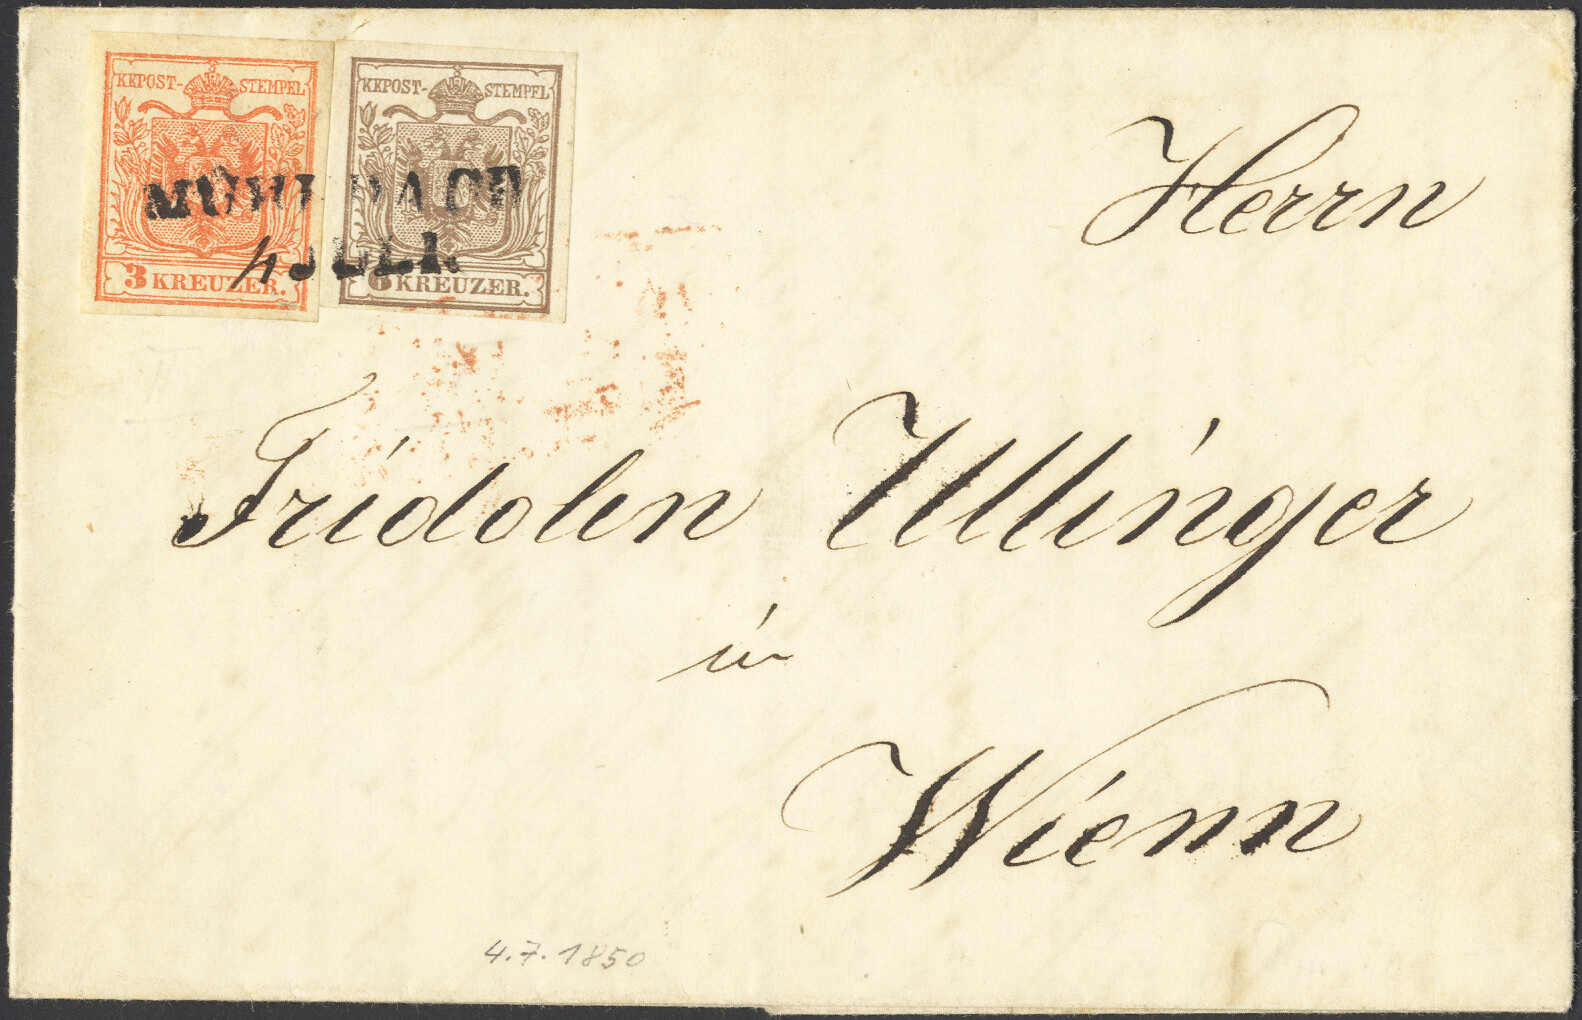 KKPOST- STEMPEL
3 KREUZER.
KKPOST- STEMPEL
6 KREUZER.
MÜHLBACH
4 JULI.
Herrn
Fridolin Ullinger
in
Wien
4.7.1850